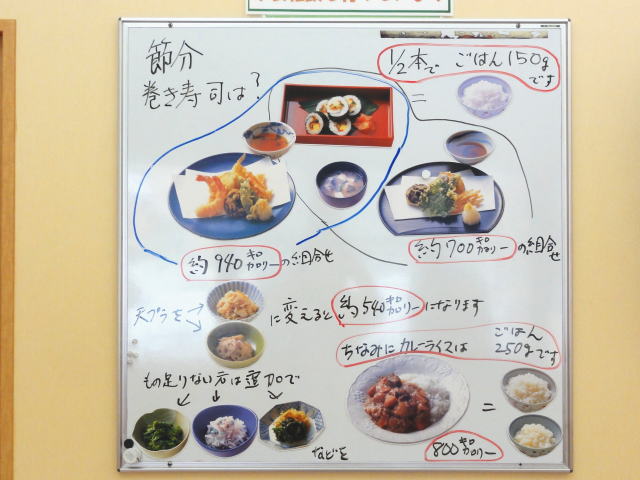 節分
巻き寿司は?
1/2本で ごはん150g
です
=
約940キロカロリーの組合せ
約700キロカロリーの組合せ
天プラを
に変えると約540キロカロリーになります
ちなみにカレーライスは ごはん
250gです
もの足りない方は追加で
などを
=
800キロカロリー